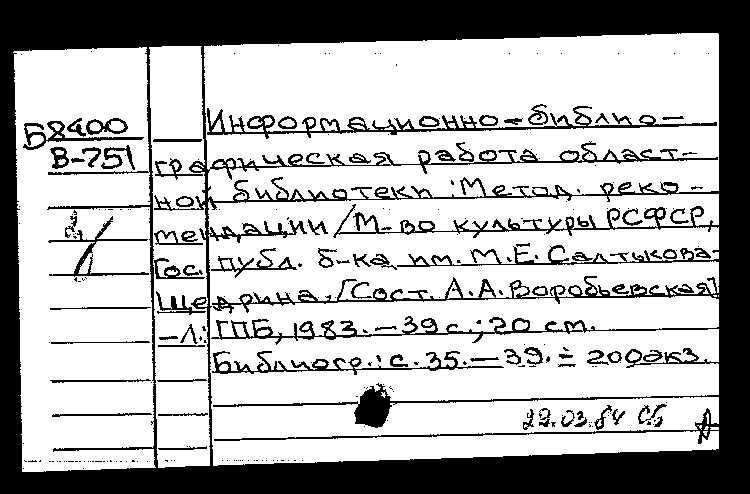 Информационно-библио-
Б8400
В-751
графическая работа област-
ной библиотеки: Метод. реко-
мендации/М-во культуры РСФСР,
Гос. публ. б-ка им. М.Е. Салтыкова-
Щедрина, [Сост. А.А. Воробьевская]
-Л.: ГПБ, 1983. - 39 с.; 20 см.
Библиогр.: с. 35. - 39. 200экз.
22.03.84 Сб